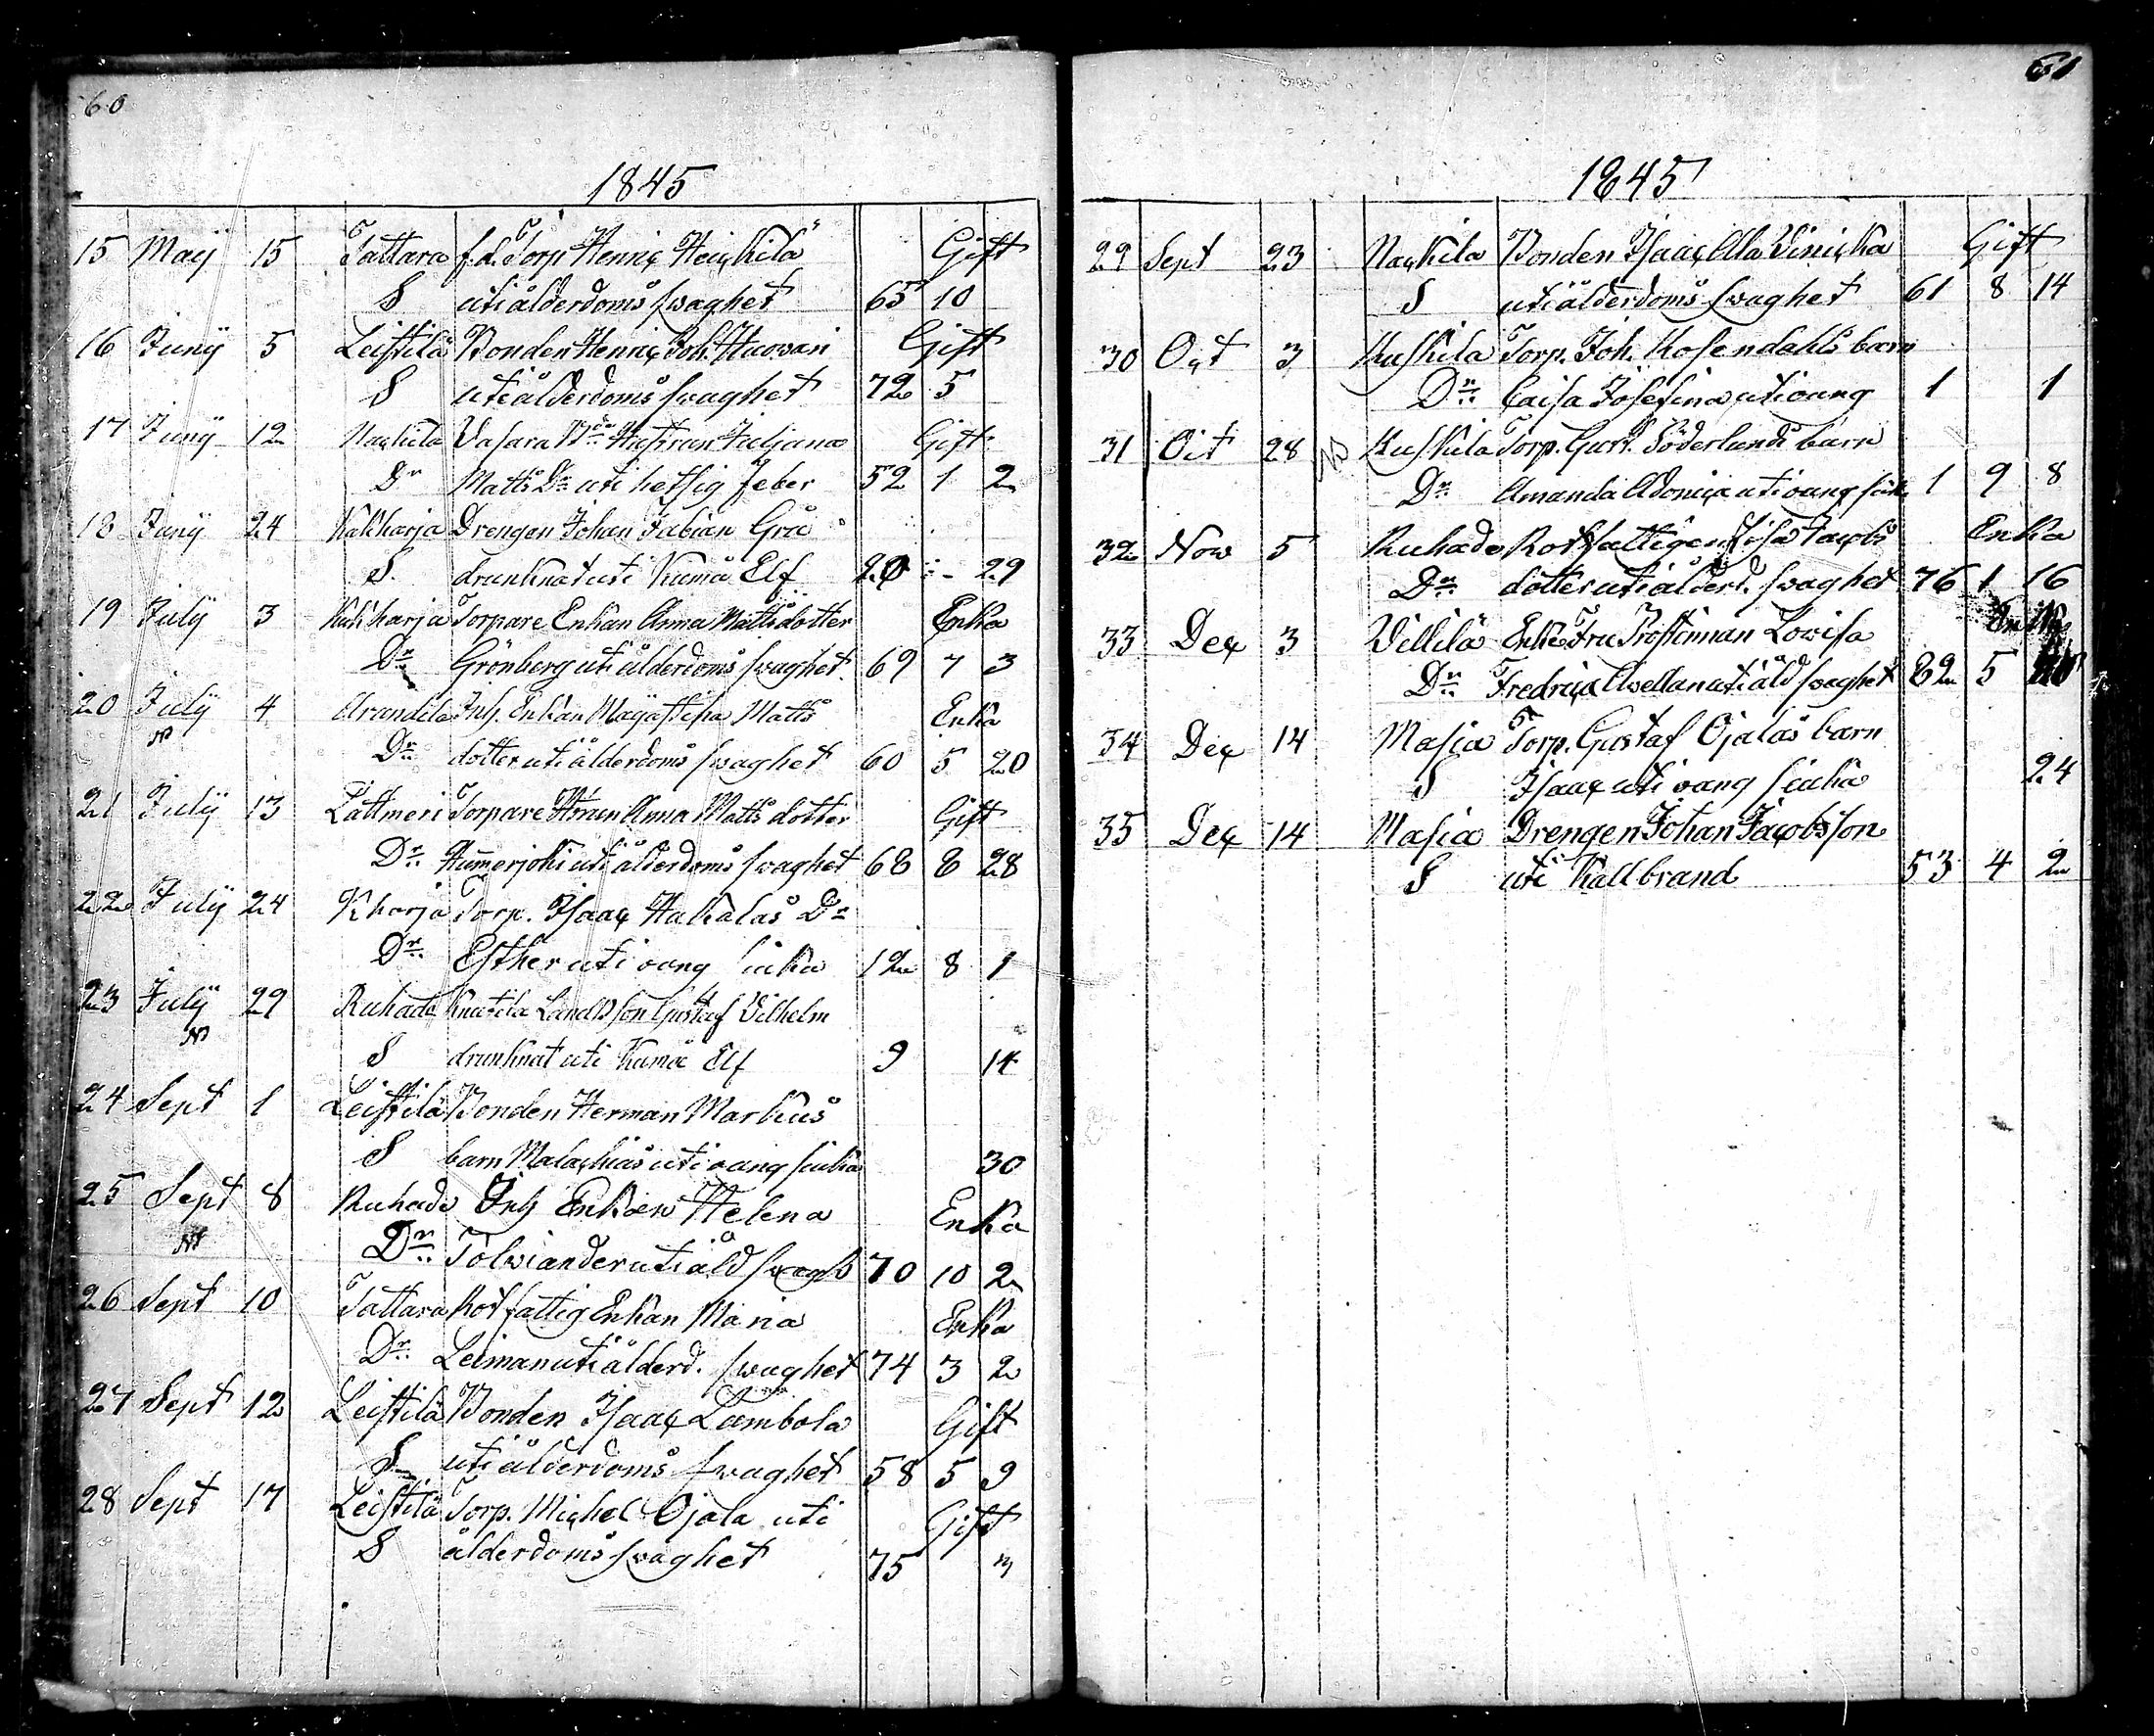 60
1845
15 Maij 15 Tattara f.d. Torp Henric Heickilä Gift
S uti ålderdoms swaghet 65 10
16 Junij 5 Leistilä Bonden Henric Joh. Huowari Gift
S uti ålderdoms swaghet 72 5
17 Junij 12 Nackila Vasara Hustrun Juljana Gift
Dr Matts Dr uti hetsig feber 52 1 2
18 Junij 24 Kukharja Drengen Johan Fabian Grå
S. drunknat uti Kumå Elf 20 - 29
19 July 3 Kukharja Torpare Enkan Anna Mattsdotter Enka
Dr Grönberg uti ålderdoms swaghet 69 7 3
20 July 4 Arandila Inh. Enkan Maja Stina Matts Enka
Dr dotter uti ålderdoms swaghet 60 5 20
21 July 13 Lattmeri Torpare Hrun Anna Matts dotter Gift
Dr Hummerjoki uti ålderdoms swaghet 68 8 28
22 July 24 Kharja Torp. Isaac Hakalas Dr
Dr Esther uti oang siuka 12 8 1
23 July 29 Ruhade Knutila Landb son Gustaf Vilhelm
S drunknat uti Kumå Elf 9 14
24 Sept 1 Leistilä Bonden Herman Markus
S barn Malachias uti oang siuka 30
25 Sept 8 Ruhade Inh Enkan Helena Enka
Dr Tolwiander uti åld swagh 70 10 2
26 Sept 10 Tattara Rotfattig Enkan Maria Enka
Dr Leiman uti ålderd. swaghet 74 3 2
27 Sept 12 Leistilä Bonden Isaac Lambola Gift
S uti ålderdoms swaghet 58 5 9
28 Sept 17 Leistilä Torp. Michel Ojala uti Gift
S ålderdoms swaghet 75 3
61
1845
29 Sept 23 Nackila Bonden Isaac Ala Vinicka Gift
S uti ålderdoms swaghet 61 8 14
30 Oct 3 Kuskila Torp. Joh. Rosendahls barn
Dr Caisa Josefina uti oang 1 1
31 Oct 28 Kuskila Torp. Gust. Söderlunds barn
Dr Amanda Adonica uti oang siuk 1 9 8
32 Now 5 Ruhade Rotfattigen Lisa Jacobs Enka
Dr dotter uti ålderd. swaghet 76 1 16
33 Dec 3 Villilä Enke Fru Prostinnan Lowisa Enka
Dr Fredrica Awellan uti åld swaghet 82 5
34 Dec 14 Masia Torp. Gustaf Ojalas barn
S Isaac uti oang siuka 24
35 Dec 14 Masia Drengen Johan Jacobsson
S uti Kallbrand 53 4 2